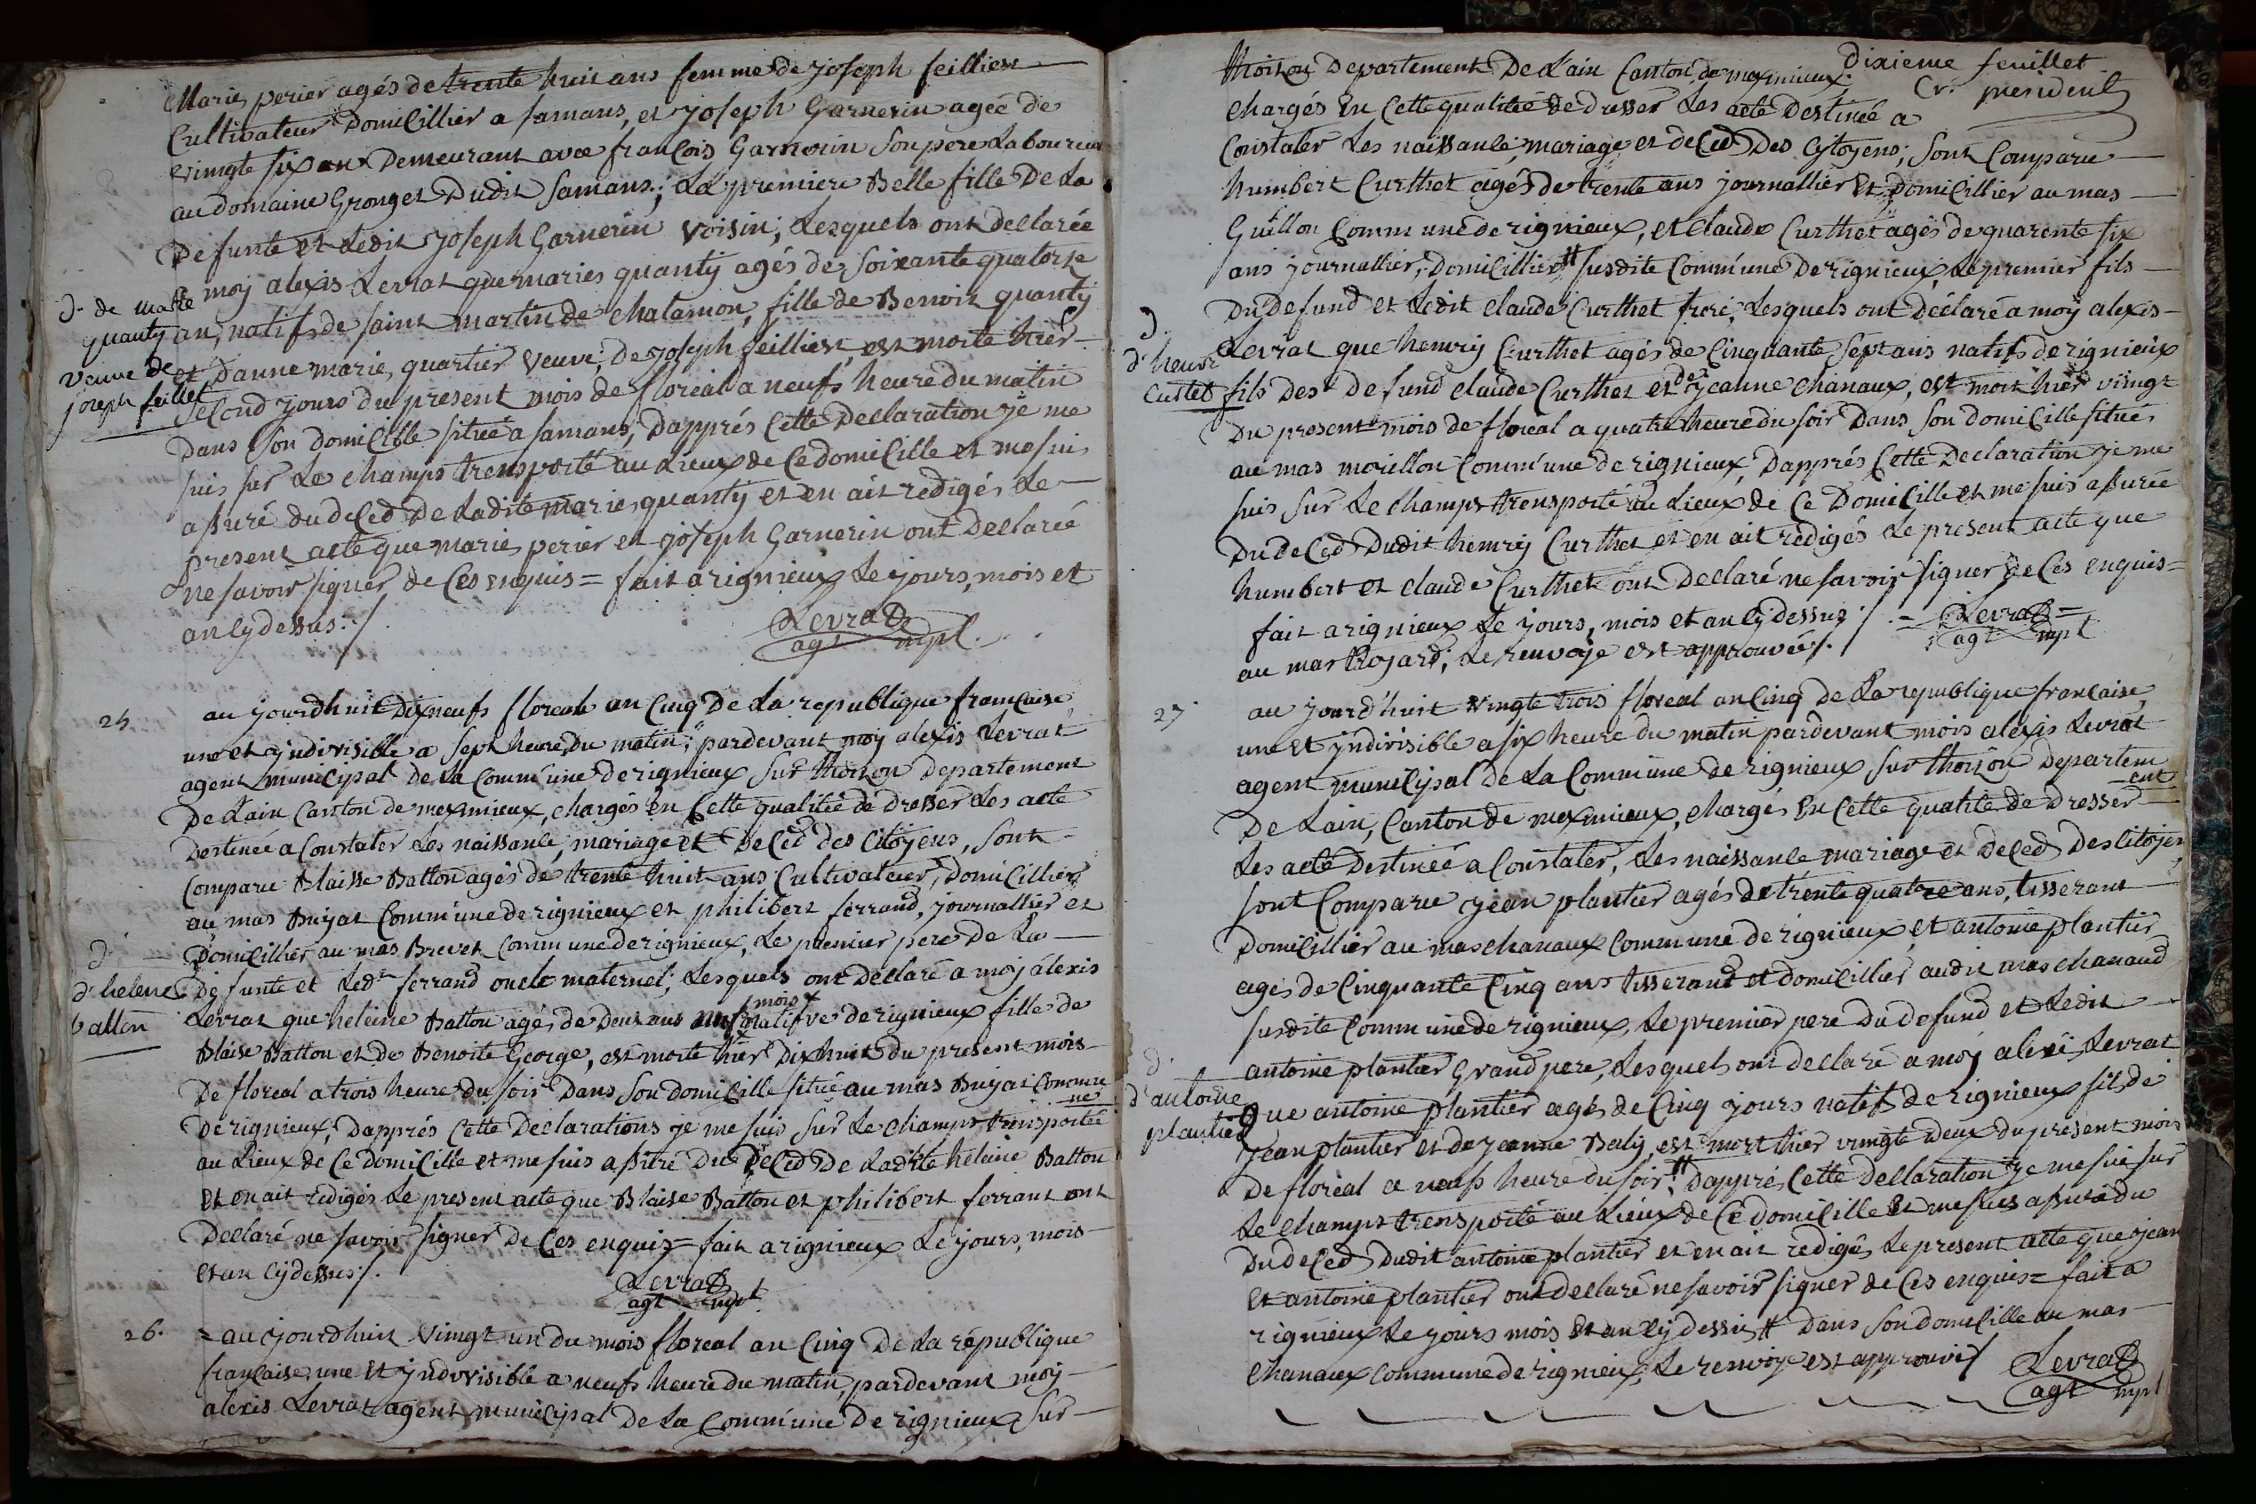 Marie perier agés de trente huit ans femme de joseph feillier
Cultivateur Domicillier a samans, et joseph Garnerin ageé de
vimgte six an Demeurant avec francois Garnerin son pere Laboureur
au domaine Gronget Dudit samans; La premiere Belle fille De La
Defunte et Ledit joseph Garnerin voisin; Lesquels ont declareé
a moij alexis Levrat que maries quantij agés de soixante quatorse
d. de marie
quanty
veuve de
joseph feillet
an, natifs de saint martin de chalamon, fille de Benoit quantij
et Danne marie, quartier veuve; de joseph feillier, est morte hier
second jours du present mois de floreal a neufs heure du matin
Dans son domicille situé a samans, Dapprés Cette Declaration je me
suis sur Le champs trensporté au Lieux de Ce domicille et me suis
assuré du deCed De Ladite maries quantij et en ait redigés Le
present acte que maries perier et joseph Garnerin ont Declareé
ne savoir signer de Ces enquis = fait a rignieux Le jours, mois et
an Cy dessus ./.
Levrat
agt mpl
25
au jourdhuit Dix neufs floreal an Cinq De La republique francaise,
une et yndivisible a sept heure Du matin; pardevant moij alexis Levrat
agent municipal de La Comm'une de rignieux sur thoison Departement
De Lain Canton de meximieux, chargés En Cette qualitée de dresser Les acte
Destineé a Constater Les naissance, mariage et deCed des Citoyens, sont
Comparu Blaisse Batton agés de trente huit ans Cultivateur, Domicillier
au mas Buijat Comm'une de rignieux et philibert ferrand, journallier et
Domicillier au mas Brevet Comm'une de rignieux, Le premier pere De La
d.
d'helene
batton
Defunte et Ledt ferrand oncle maternel; Lesquels ont declaré a moij alexis
Levrat que heleine Batton agés de Deux ans mois natifve de rignieux fille de
Blaise Batton et de Benoite George, est morte hier Dix huit du present mois
De floreal a trois heure du soir Dans son domicille situé au mas Buijat Commu
ne
De rignieux, Dapprés Cette Declarations je me suis sur Le champs trensporteé
au Lieux de Ce domicille et me suis assuré Du DeCed De Ladite heleine Batton
Et en ait redigés Le present acte que Blaise Batton et philibert ferrant ont
Declaré ne savoir signer De Ces enquis = fait a rignieux Le jours, mois
et an Cij dessus ./.
Levrat
agt mpl
26.
= au jourdhuit vimgt un du mois floreal an Cinq De La republique
francaise, une Et yndivisible a neufs heure du matin, pardevant moij
alexis Levrat agent municipal De La Comm'une De rignieux sur
Dixieme feuillet
Cr. president
thoison Departement De Lain Canton de meximieux
chargés En Cette qualiteé de dresser Les acte Destineé a
Constater Les naissance, mariage et deCed Des Cytoyens; sont Comparu
humbert Curthet agés de trente ans journallier Et Domicillier au mas
Guillon Comm'une de rignieux, et claude Curthet agés de quarente six
ans journallier, Domicillier # susdite Comm'une De rignieux, Le premier fils
Du Defund et Ledit claude Curthet frere, Lesquels ont Déclaré a moij alexis
d.
d'henri
Curtet
Levrat que henrij Curthet agés de Cinquante sept ans natifs de rignieux
fils Des Defund claude Curthet et de jeanne chanaux, est mort hier vimgt
Du present mois de floreal a quatre heure du soir Dans son domicille situé
au mas morillon Comm'une de rignieux, Dapprés Cette Declaration je me
suis sur Le champs trensporté au Lieux de Ce Domicille et me suis assureé
Du deCed Dudit henrij Curthet et en ait redigés Le present acte que
humbert et claude Curthet ont Declaré ne savoir signer de Ces enquis =
fait a rignieux Le jours, mois et an Cij dessus ./.
Levrat
agt mpl
au mas trojard; Le renvoye est approuvé ./.
27
au jourd'huit vingte trois floreal an Cinq de La republique francaise,
une et yndivisible a six heure du matin pardevant mois alexis Levrat
agent municipal de La Comm'une de rignieux sur thoison Departem
ent
De Lain, Canton de meximieux, chargés En Cette qualité de Dresser
Les acte Destineé a Constater, Les naissance mariage et deCed Des Citoyen
sont Comparu jean plantier agés de trente quatre ans, tisserant
Domicillier au mas chanaux Commune de rignieux et antoine plantier
agés de Cinquante Cinq ans tisserand et domicillier audit mas chanaud
susdite Comm'une de rignieux, Le premier pere Du defund et Ledit
antoine plantier Grand pere, Lesquels ont declaré a moij alexi Levrat
d.
d'antoine
plantier
Que antoine plantier agés de Cinq jours natifs de rignieux fils de
jean plantier et de jeanne Balij, est mort hier vimgte deux du present mois
De floréal a neufs heure du soir # Dapprés Cette declaration je me sui sur
Le champs trensporté au Lieux de Ce domicille Et me suis assuré du
Du deCed Dudit antoine plantier et en ait redigés Le present acte que jean
Et antoine plantier ont declaré ne savoir signer de Ces enquis = fait a
rignieux Le jours mois Et an Cij dessus # Dans son domicille au mas
chanaux Commune de rignieux, Le renvoye est approuvé /
Levrat
agt mpl